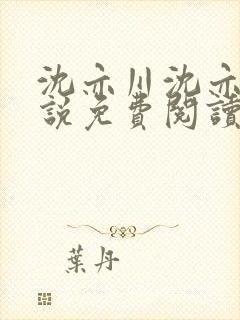 沈亦川沈亦
說免費閱讀
葉丹